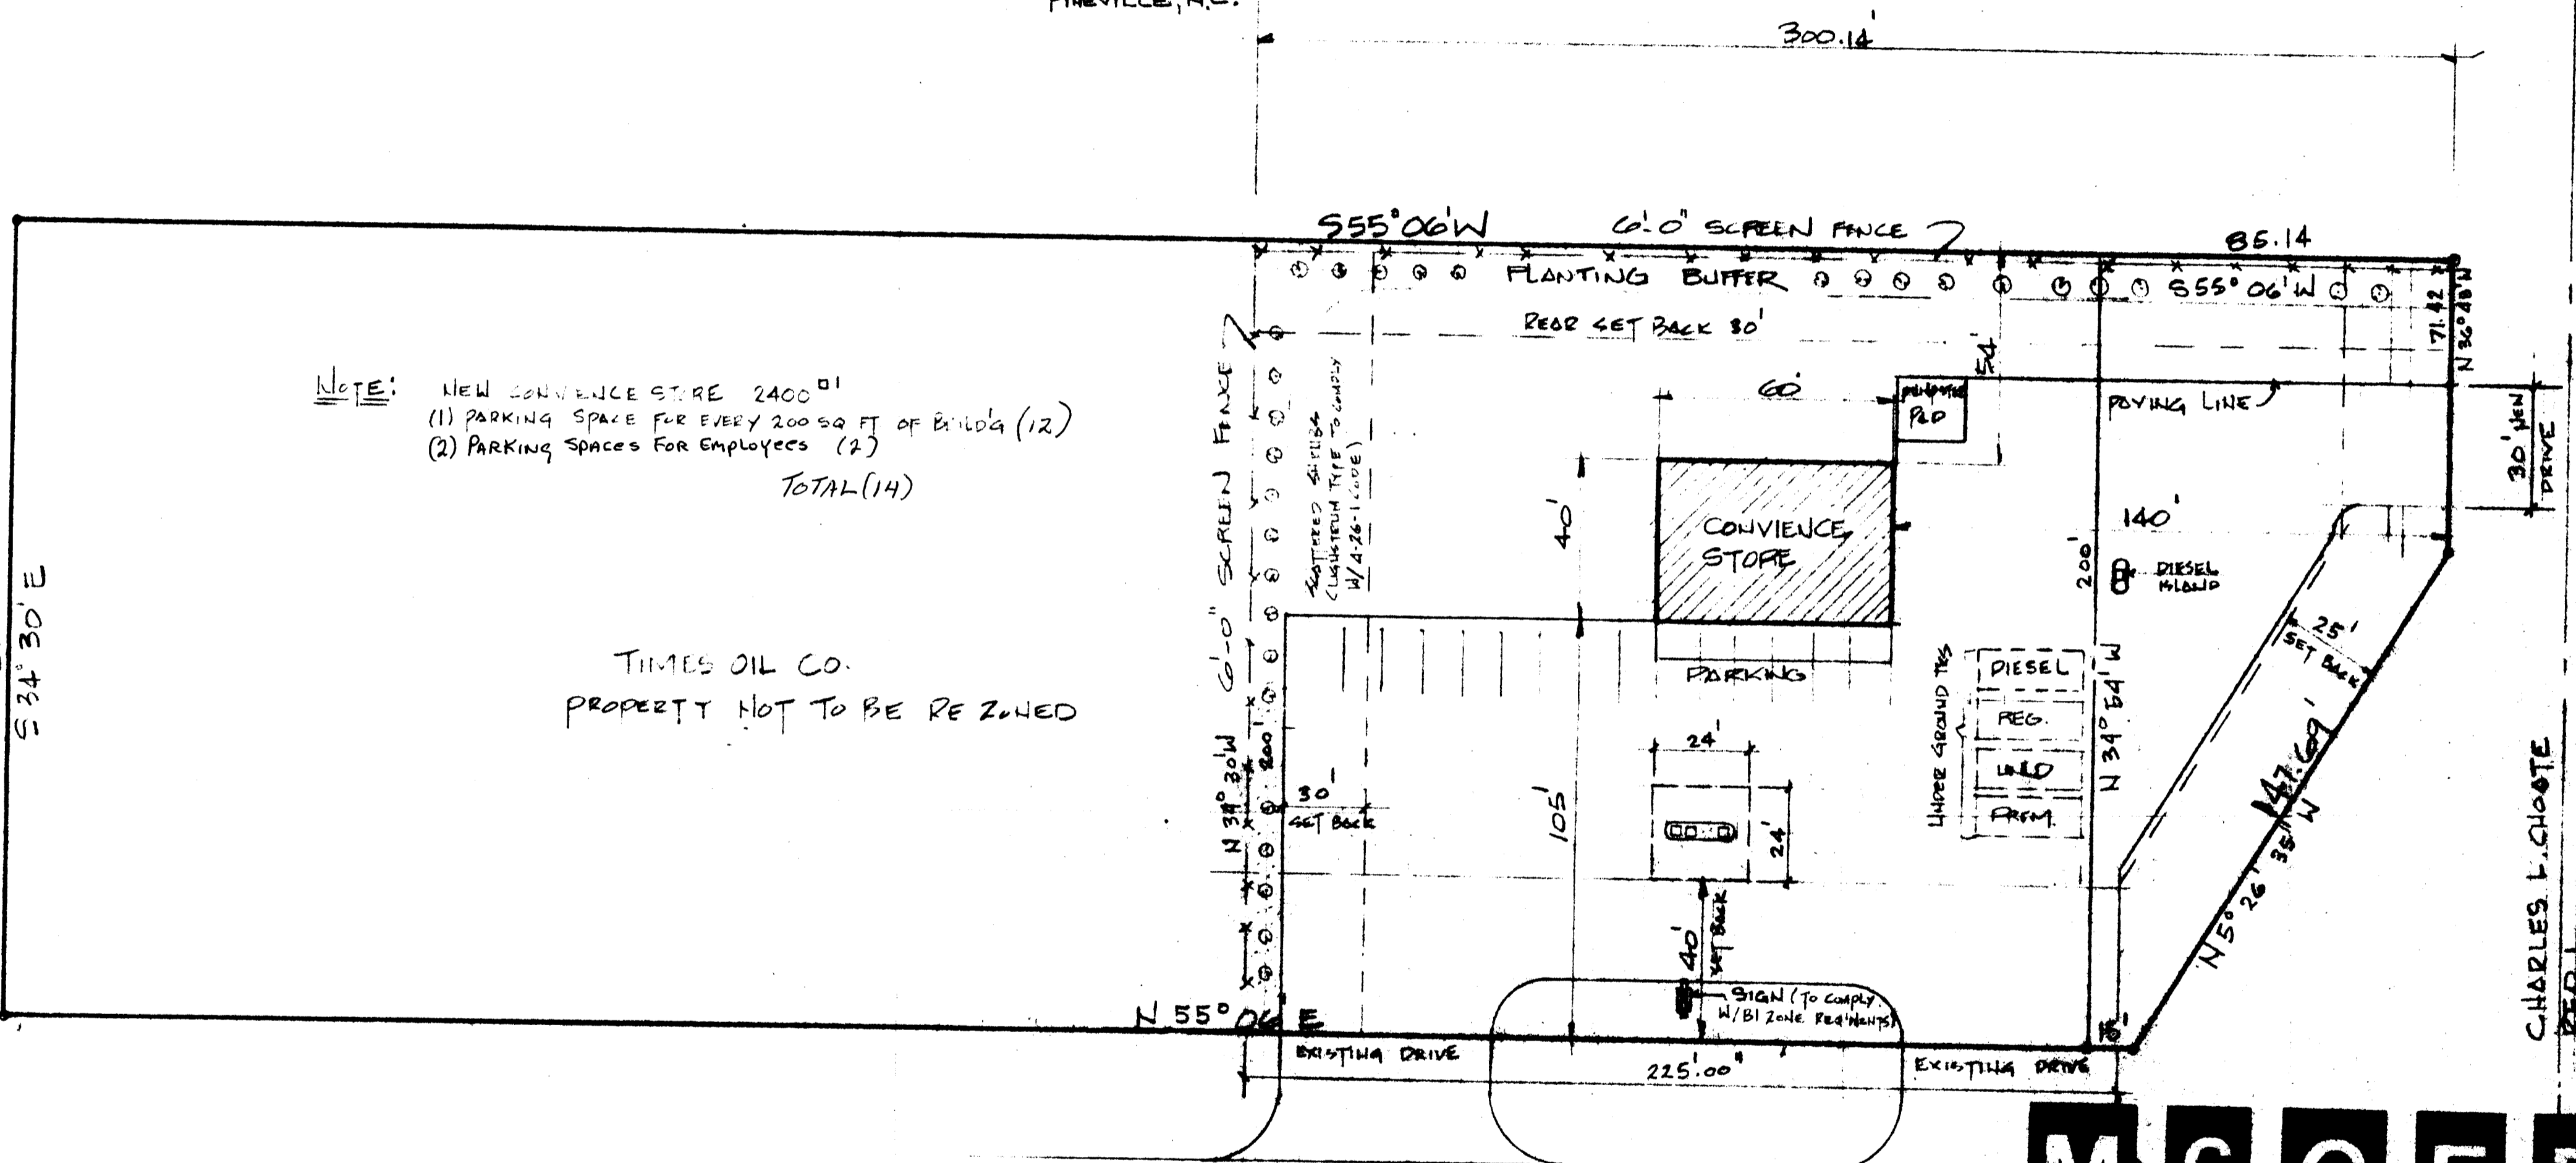 PINEVILLE, N.C.
300.14'
S55°06'W
6'-0" SCREEN FENCE
85.14
PLANTING BUFFER
S55°06'W
71.42
N 36°48'W
REAR SET BACK 30'
54'
NOTE: NEW CONVENCE STORE 2400
(1) PARKING SPACE FOR EVERY 200 SQ FT OF BUILD'G (12)
(2) PARKING SPACES FOR EMPLOYEES (2)
TOTAL (14)
6'-0" SCREEN FENCE
SCATTERED SHRUBS
(LIGUSTRUM TYPE TO COMPLY
W/4-26-1 CODE)
60'
DUMPSTER
PAD
PAVING LINE
30' NEW
DRIVE
40'
CONVIENCE
STORE
140'
200'
DIESEL
ISLAND
S 34°30'E
TIMES OIL CO.
PROPERTY NOT TO BE REZONED
PARKING
UNDER GROUND TKS
DIESEL
REG.
UNLD
PREM.
N 34°54'W
25'
SET BACK
147.69'
N5° 26' 35" W
N 34°30'W
200'
30'
SET BACK
105'
24'
24'
40'
SET BACK
SIGN (TO COMPLY
W/B1 ZONE REQ'MENTS)
CHARLES L. CHOATE
N 55° 06' E
EXISTING DRIVE
225'.00"
EXISTING DRIVE
10'